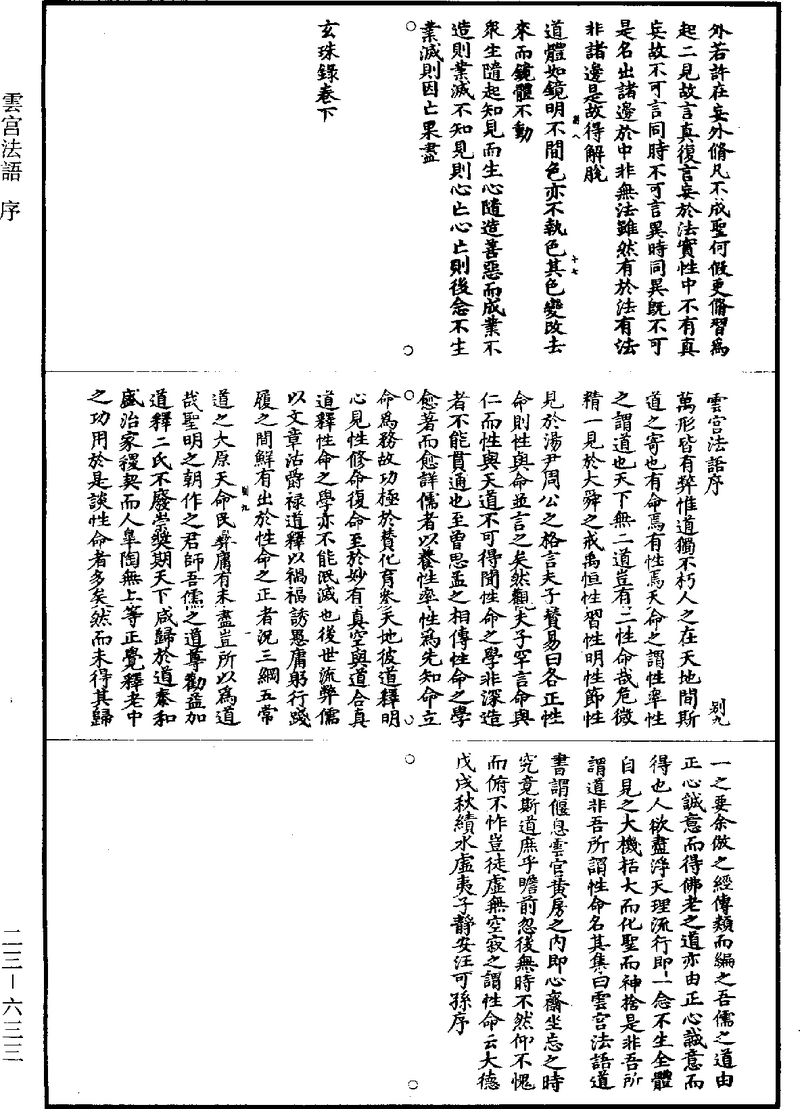 外若許在妄外脩凡不成聖何假更脩習為
起二見故言真復言妄於法實性中不有真
妄故不可言同時不可言異時同異既不可
是名出諸邊於中非無法雖然有於法有法
非諸邊是故得解脫
道體如鏡明不間色亦不執色其色變改去
來而鏡體不動
眾生隨起知見而生心隨造善惡而成業不
造則業滅不知見則心亡心亡則後念不生
業滅則因亡果盡
玄珠錄卷下
十七
雲宮法語序
別九
萬形皆有弊惟道獨不朽人之在天地間斯
道之寄也有命焉有性焉天命之謂性率性
之謂道也天下無二道豈有二性命哉危微
精一見於大舜之戒禹恒性習性明性節性
見於湯尹周公之格言夫子贊易曰各正性
命則性與命並言之矣然觀夫子罕言命與
仁而性與天道不可得聞性命之學非深造
者不能貫通也至曾思孟之相傳性命之學
愈著而愈詳儒者以養性率性為先知命立
命為務故功極於贊化育參天地彼道釋明
心見性修命復命至於妙有真空與道合真
道釋性命之學亦不能泯滅也後世流弊儒
以文章沽爵祿道釋以禍福誘愚庸躬行踐
履之間鮮有出於性命之正者況三綱五常
道之大原天命民彝庸有未盡豈所以為道
哉聖明之朝作之君師吾儒之道尊勸益加
道釋二氏不廢崇獎期天下咸歸於道泰和
盛治家稷契而人皐陶無上等正覺釋老中
之功用於是談性命者多矣然而未得其歸
別九
一之要余倣之經傳類而編之吾儒之道由
正心誠意而得佛老之道亦由正心誠意而
得也人欲盡淨天理流行即一念不生全體
自見之大機括大而化聖而神捨是非吾所
謂道非吾所謂性命名其集曰雲宮法語道
書謂偃息雲宮黃房之內即心齋坐忘之時
究竟斯道庶乎瞻前忽後無時不然仰不愧
而俯不怍豈徒虛無空寂之謂性命云大德
戊戌秋績水虛夷子靜安汪可孫序
雲宮法語 序
二三-六三三